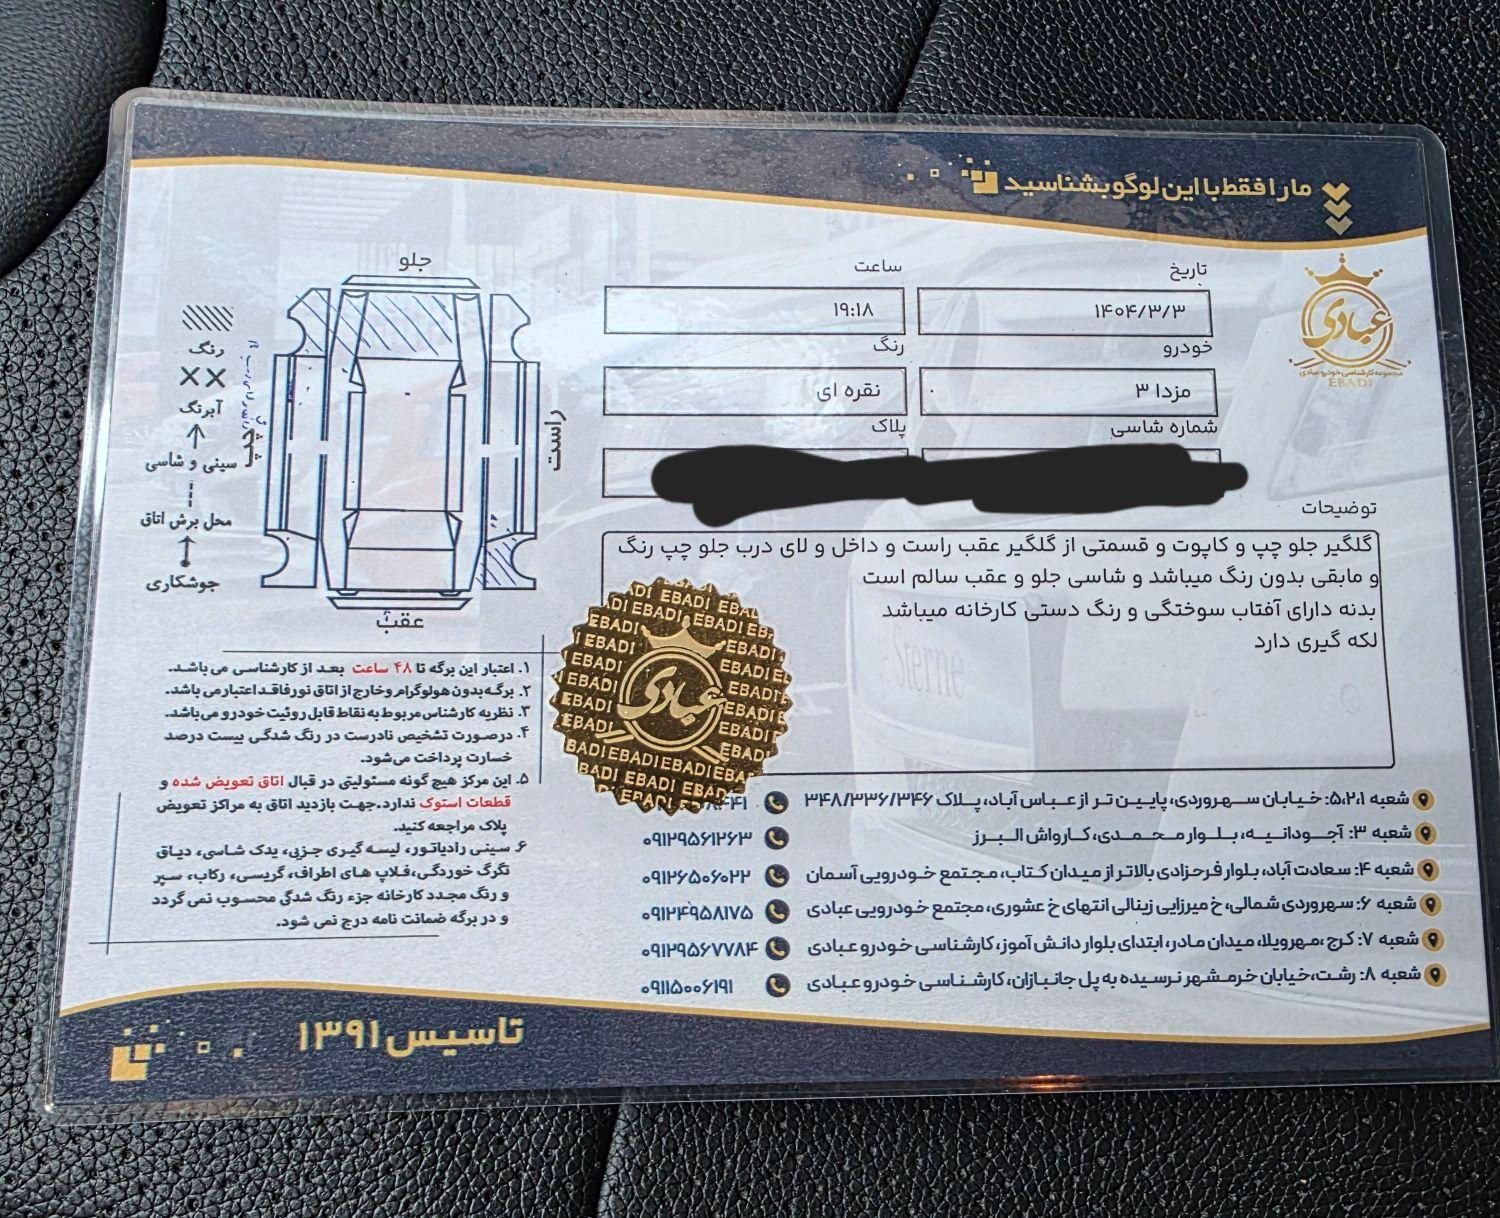 ما را فقط با این لوگو بشناسید
عبادی
مجموعه کارشناسی خودرو عبادی
EBADI
تاریخ
۱۴۰۴/۳/۳
ساعت
۱۹:۱۸
خودرو
مزدا ۳
رنگ
نقره ای
شماره شاسی
پلاک
توضیحات
گلگیر جلو چپ و کاپوت و قسمتی از گلگیر عقب راست و داخل و لای درب جلو چپ رنگ
و مابقی بدون رنگ میباشد و شاسی جلو و عقب سالم است
بدنه دارای آفتاب سوختگی و رنگ دستی کارخانه میباشد
لکه گیری دارد
جلو
راست
چپ
عقب
رنگ
آبرنگ
سینی و شاسی
محل برش اتاق
جوشکاری
۱. اعتبار این برگه تا ۴۸ ساعت بعد از کارشناسی می باشد.
۲. برگه بدون هولوگرام و خارج از اتاق نور فاقد اعتبار می باشد.
۳. نظریه کارشناس مربوط به نقاط قابل روئیت خودرو می‌باشد.
۴. درصورت تشخیص نادرست در رنگ شدگی بیست درصد
خسارت پرداخت می‌شود.
۵. این مرکز هیچ گونه مسئولیتی در قبال اتاق تعویض شده و
قطعات استوک ندارد.جهت بازدید اتاق به مراکز تعویض
پلاک مراجعه کنید.
۶. سینی رادیاتور، لیسه گیری جزیی، یدک شاسی، دیاق
تگرگ خوردگی، قلاب های اطراف، گریسی، رکاب، سپر
و رنگ مجدد کارخانه جزء رنگ شدگی محسوب نمی گردد
و در برگه ضمانت نامه درج نمی شود.
EBADI
عبادی
شعبه ۵،۲،۱: خیابان سهروردی، پایین تر از عباس آباد، پلاک ۳۴۸/۳۳۶/۳۴۶
شعبه ۳: آجودانیه، بلوار محمدی، کارواش البرز ۰۹۱۲۹۵۶۱۲۶۳
شعبه ۴: سعادت آباد، بلوار فرحزادی بالاتر از میدان کتاب، مجتمع خودرویی آسمان ۰۹۱۲۶۵۰۶۰۲۲
شعبه ۶: سهروردی شمالی، خ میرزایی زینالی انتهای خ عشوری، مجتمع خودرویی عبادی ۰۹۱۲۴۹۵۸۱۷۵
شعبه ۷: کرج، مهرویلا، میدان مادر، ابتدای بلوار دانش آموز، کارشناسی خودرو عبادی ۰۹۱۲۹۵۶۷۷۸۴
شعبه ۸: رشت، خیابان خرمشهر نرسیده به پل جانبازان، کارشناسی خودرو عبادی ۰۹۱۱۵۰۰۶۱۹۱
تاسیس ۱۳۹۱